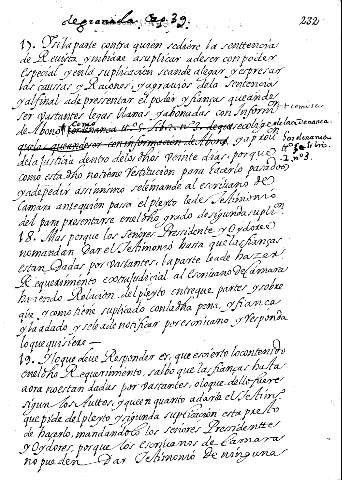 de granada Cap. 39.
232
17. Y si la parte contra quien se diere la senttencia
de Revista, y hubiere a suplicar a de ser con poder
especial, y en la suplicación se an de alegar, y expresar
las causas, y Raçones, y agravios dela Sentencia
y al final a de presentar el poder, y fianças que an de
ser bastantes legas llanas, y abonadas con Inform.
de Abono Como
que la que an de ser con informacion de Abono
de la Justicia dentro de los dhos Veinte dias, porque
como esta dho no tiene Restitución para hacerlo pasado
y a de pedir assimismo se le mande al escribano de
Camara ante quien paso el pleyto le de Testimonio
del para presentarse en el dho grado de segunda suplin
18. Mas porque los Señores Presidente y Oydores
no mandan Dar el Testimonio hasta que las fianças
estan Dadas por bastantes, la parte le a de hazer
Requerimiento extrajudicial al Escribano de Camara
haciendo Relacion del pleyto entre que partes, y sobre
que, y como tiene suplicado con la dha pena, y fiança
y la a dado, y se lo a de notificar por escribano, y Responda
lo que quisiere
19. Y lo que deve Responder es, que es cierto lo contenido
en el dho Requerimiento, salbo que las fianças hasta
aora no estan dadas por bastantes, o lo que de ello fuere
segun los Autos, y que en quanto a darle el Testim.
que pide del pleyto y segunda suplicación esta presto
de hacerlo, mandandoselo los señores Presidentte
y Oydores, porque los escribanos de Camara
no pueden Dar Testimonio de ninguna